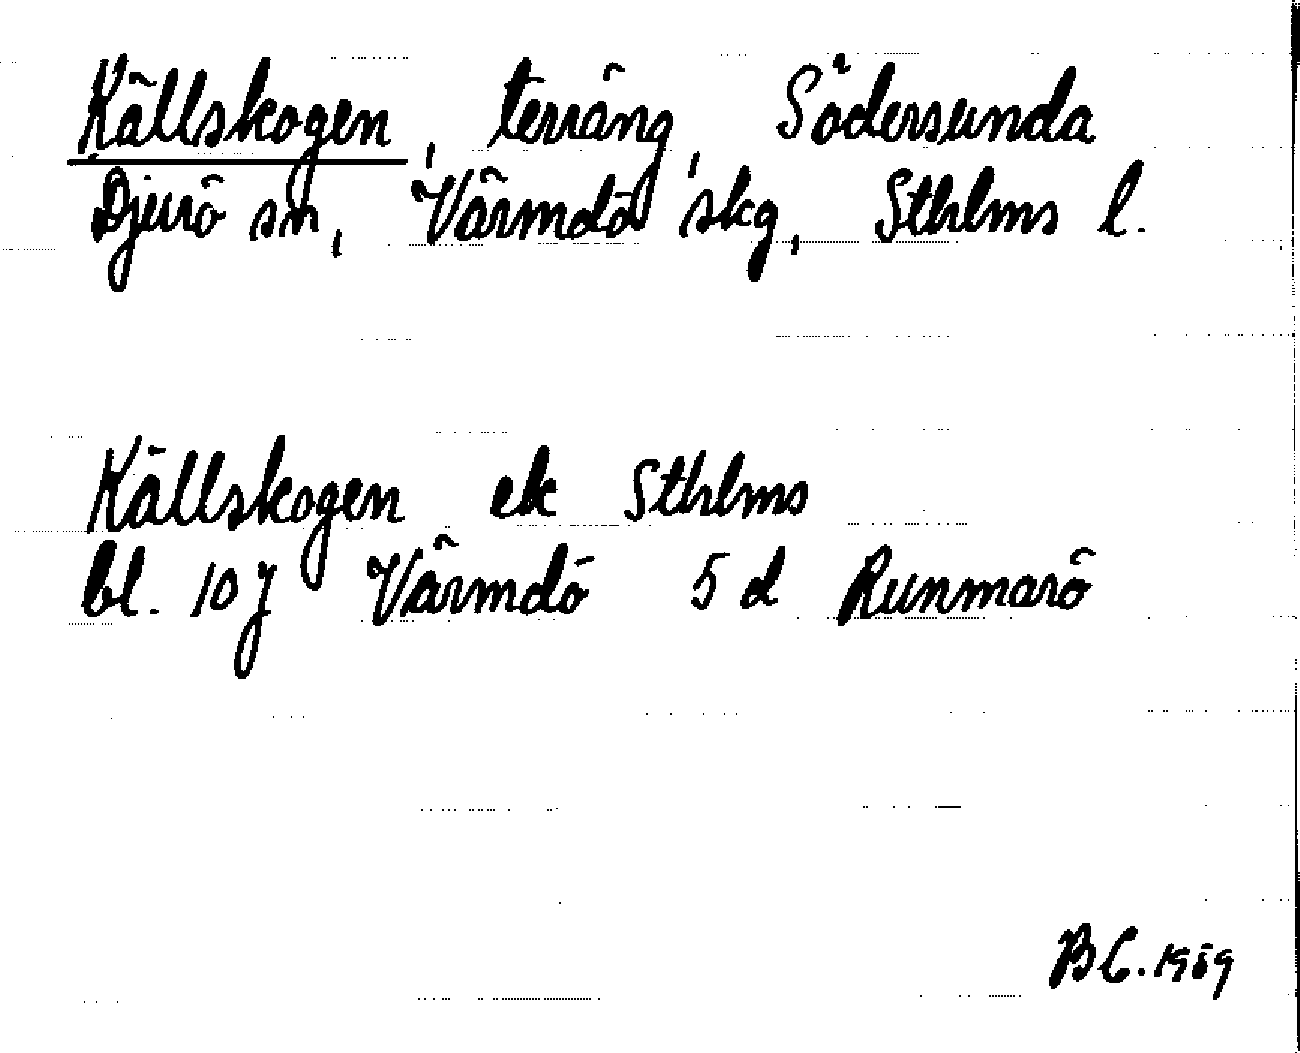 Källskogen, terräng, Södersunda
Djurö sn, Värmdö skg, Sthlms l.
Källskogen ek Sthlms
bl. 10 J Värmdö 5 d Runmarö
BC. 1969